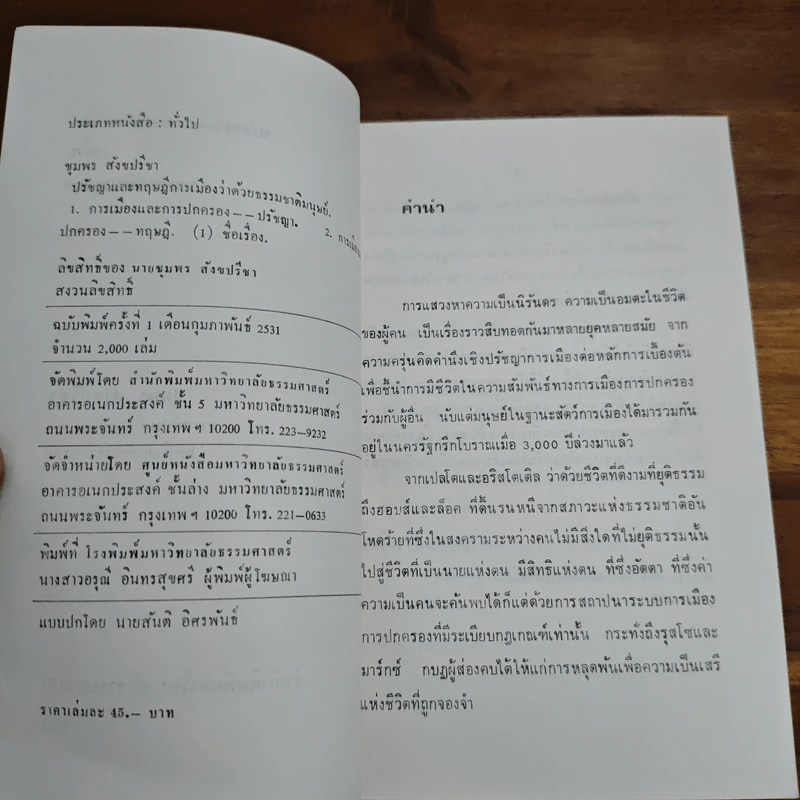 ประเภทหนังสือ : ทั่วไป
ชุมพร สังขปรีชา
ปรัชญาและทฤษฎีการเมืองว่าด้วยธรรมชาติมนุษย์.
1. การเมืองและการปกครอง——ปรัชญา. 2. การเมือง
ปกครอง——ทฤษฎี. (1) ชื่อเรื่อง.
ลิขสิทธิ์ของ นายชุมพร สังขปรีชา
สงวนลิขสิทธิ์
ฉบับพิมพ์ครั้งที่ 1 เดือนกุมภาพันธ์ 2531
จำนวน 2,000 เล่ม
จัดพิมพ์โดย สำนักพิมพ์มหาวิทยาลัยธรรมศาสตร์
อาคารอเนกประสงค์ ชั้น 5 มหาวิทยาลัยธรรมศาสตร์
ถนนพระจันทร์ กรุงเทพฯ 10200 โทร. 223-9232
จัดจำหน่ายโดย ศูนย์หนังสือมหาวิทยาลัยธรรมศาสตร์
อาคารอเนกประสงค์ ชั้นล่าง มหาวิทยาลัยธรรมศาสตร์
ถนนพระจันทร์ กรุงเทพฯ 10200 โทร. 221-0633
พิมพ์ที่ โรงพิมพ์มหาวิทยาลัยธรรมศาสตร์
นางสาวอรุณี อินทรสุขศรี ผู้พิมพ์ผู้โฆษณา
แบบปกโดย นายสันติ อิศรพันธ์
ราคาเล่มละ 45.- บาท
คำนำ
การแสวงหาความเป็นนิรันดร ความเป็นอมตะในชีวิต
ของผู้คน เป็นเรื่องราวสืบทอดกันมาหลายยุคหลายสมัย จาก
ความครุ่นคิดคำนึงเชิงปรัชญาการเมืองต่อหลักการเบื้องต้น
เพื่อชี้นำการมีชีวิตในความสัมพันธ์ทางการเมืองการปกครอง
ร่วมกับผู้อื่น นับแต่มนุษย์ในฐานะสัตว์การเมืองได้มารวมกัน
อยู่ในนครรัฐกรีกโบราณเมื่อ 3,000 ปีล่วงมาแล้ว
จากเปลโตและอริสโตเติล ว่าด้วยชีวิตที่ดีงามที่ยุติธรรม
ถึงฮอบส์และล็อค ที่ดิ้นรนหนีจากสภาวะแห่งธรรมชาติอัน
โหดร้ายที่ซึ่งในสงครามระหว่างคนไม่มีสิ่งใดที่ไม่ยุติธรรมนั้น
ไปสู่ชีวิตที่เป็นนายแห่งตน มีสิทธิแห่งตน ที่ซึ่งอัตตา ที่ซึ่งค่า
ความเป็นคนจะค้นพบได้ก็แต่ด้วยการสถาปนาระบบการเมือง
การปกครองที่มีระเบียบกฎเกณฑ์เท่านั้น กระทั่งถึงรุสโซและ
มาร์กซ์ กบฏผู้ส่องคบใต้ให้แก่การหลุดพ้นเพื่อความเป็นเสรี
แห่งชีวิตที่ถูกจองจำ